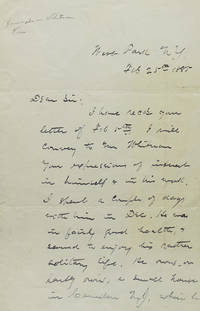 West Park N.Y.
Feb 25th 1885
Dear Sir:
I have recd your
letter of Feb 5th. I will
convey to Mr Whitman
your expressions of interest
in himself & in his work.
I spent a couple of days
with him in Dec. He was
in fairly good health, &
seemed to enjoy his rather
solitary life. He owns, or
partly owns, a small house
in Camden N.J, which